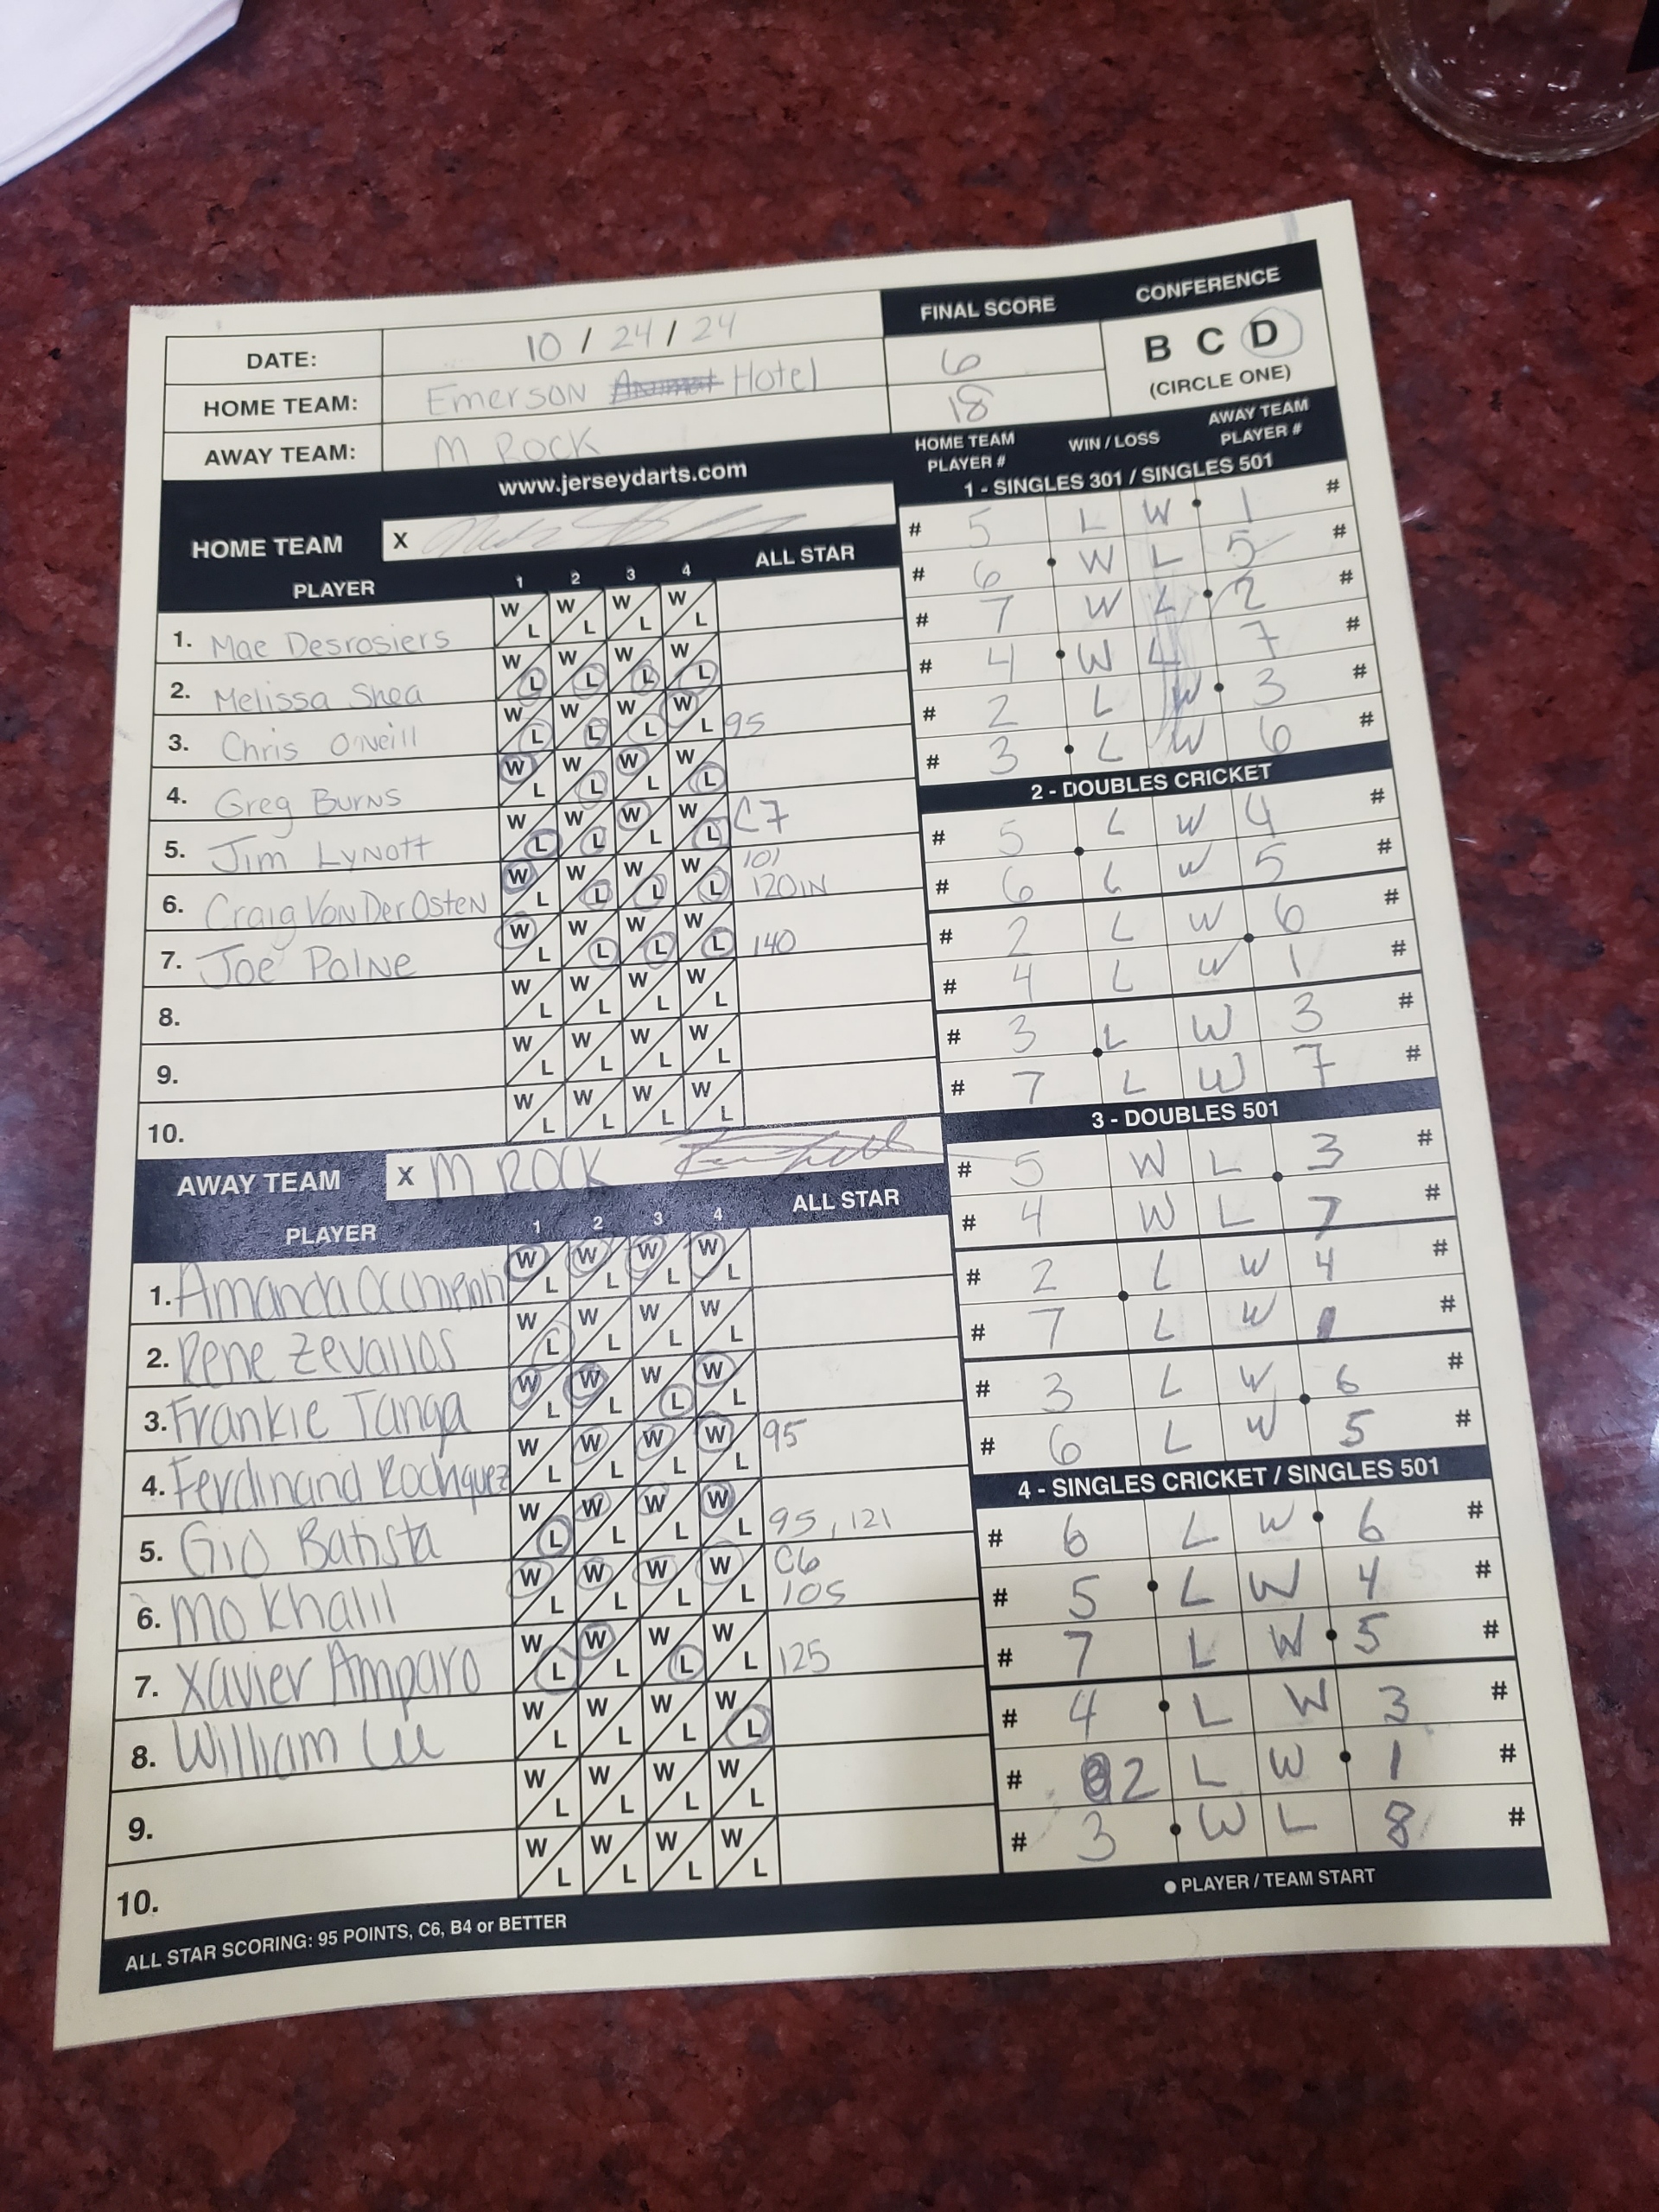 FINAL SCORE
CONFERENCE
DATE: 10 / 24 / 24
6
B C D
(CIRCLE ONE)
HOME TEAM: Emerson Hotel
18
AWAY TEAM: M ROCK
www.jerseydarts.com
HOME TEAM PLAYER # WIN / LOSS AWAY TEAM PLAYER #
1 - SINGLES 301 / SINGLES 501
# 5 L W 1 #
# 6 W L 5 #
# 7 W L 2 #
# 4 W L 7 #
# 2 L W 3 #
# 3 L W 6 #
2 - DOUBLES CRICKET
# 5 L W 4 #
# 6 L W 5 #
# 2 L W 6 #
# 4 L W 1 #
# 3 L W 3 #
# 7 L W 7 #
3 - DOUBLES 501
# 5 W L 3 #
# 4 W L 7 #
# 2 L W 4 #
# 7 L W 1 #
# 3 L W 6 #
# 6 L W 5 #
4 - SINGLES CRICKET / SINGLES 501
# 6 L W 6 #
# 5 L W 4 #
# 7 L W 5 #
# 4 L W 3 #
# 2 L W 1 #
# 3 W L 8 #
PLAYER / TEAM START
HOME TEAM X
PLAYER 1 2 3 4 ALL STAR
1. Mae Desrosiers W L W L W L W L
2. Melissa Shea W L W L W L W L
3. Chris O'Neill W L W L W L W L 95
4. Greg Burns W L W L W L W L
5. Jim Lynott W L W L W L W L C7
6. Craig Von Der Osten W L W L W L W L 101 120IN
7. Joe Polne W L W L W L W L 140
8. W L W L W L W L
9. W L W L W L W L
10. W L W L W L W L
AWAY TEAM X M ROCK
PLAYER 1 2 3 4 ALL STAR
1. Amanda W L W L W L W L
2. Rene Zevallos W L W L W L W L
3. Frankie Tanga W L W L W L W L
4. Ferdinand Rodriquez W L W L W L W L 95
5. Gio Batista W L W L W L W L 95, 121
6. Mo Khalil W L W L W L W L C6 105
7. Xavier Amparo W L W L W L W L 125
8. William W L W L W L W L
9. W L W L W L W L
10. W L W L W L W L
ALL STAR SCORING: 95 POINTS, C6, B4 or BETTER